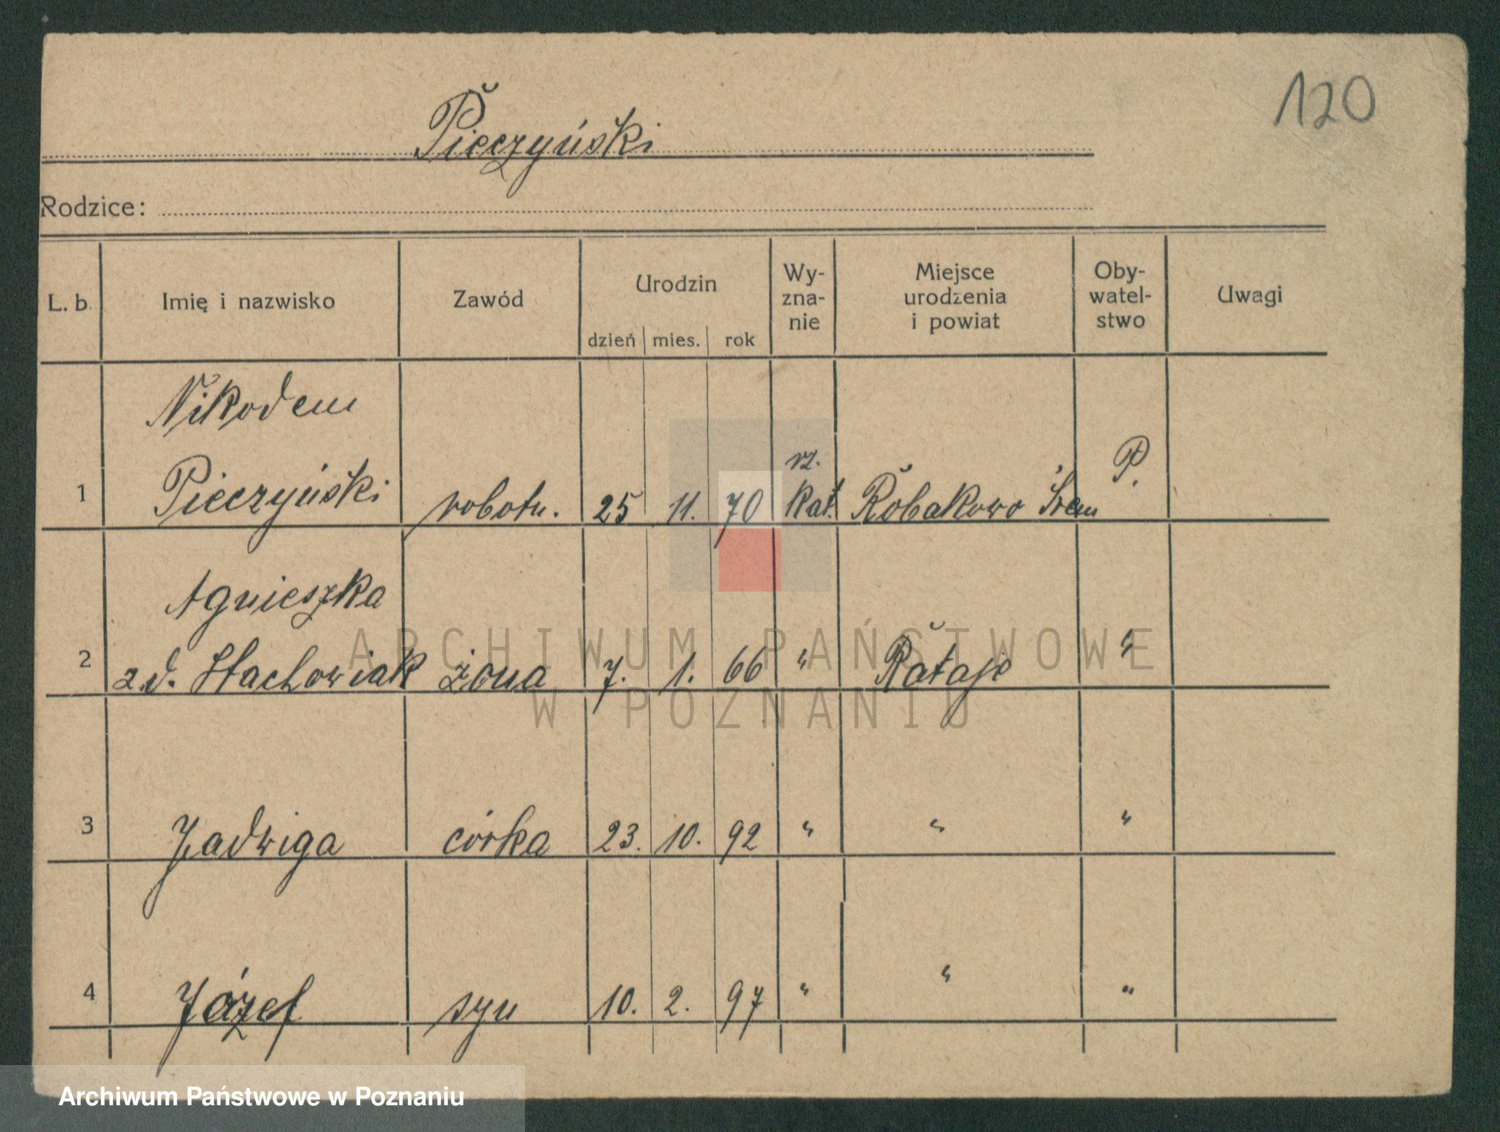 120
Pieczyński
Rodzice:
L. b. Imię i nazwisko Zawód Urodzin dzień mies. rok Wy-zna-nie Miejsce urodzenia i powiat Oby-watel-stwo Uwagi
Nikodem
1 Pieczyński robotn. 25 11. 70 rz. kat. Robakowo Śrem P.
Agnieszka
2 z d. Stachowiak żona 7. 1. 66 " Rataje "
3 Jadwiga córka 23. 10. 92 " " "
4 Józef syn 10. 2. 97 " " "
ARCHIWUM PAŃSTWOWE
W POZNANIU
Archiwum Państwowe w Poznaniu